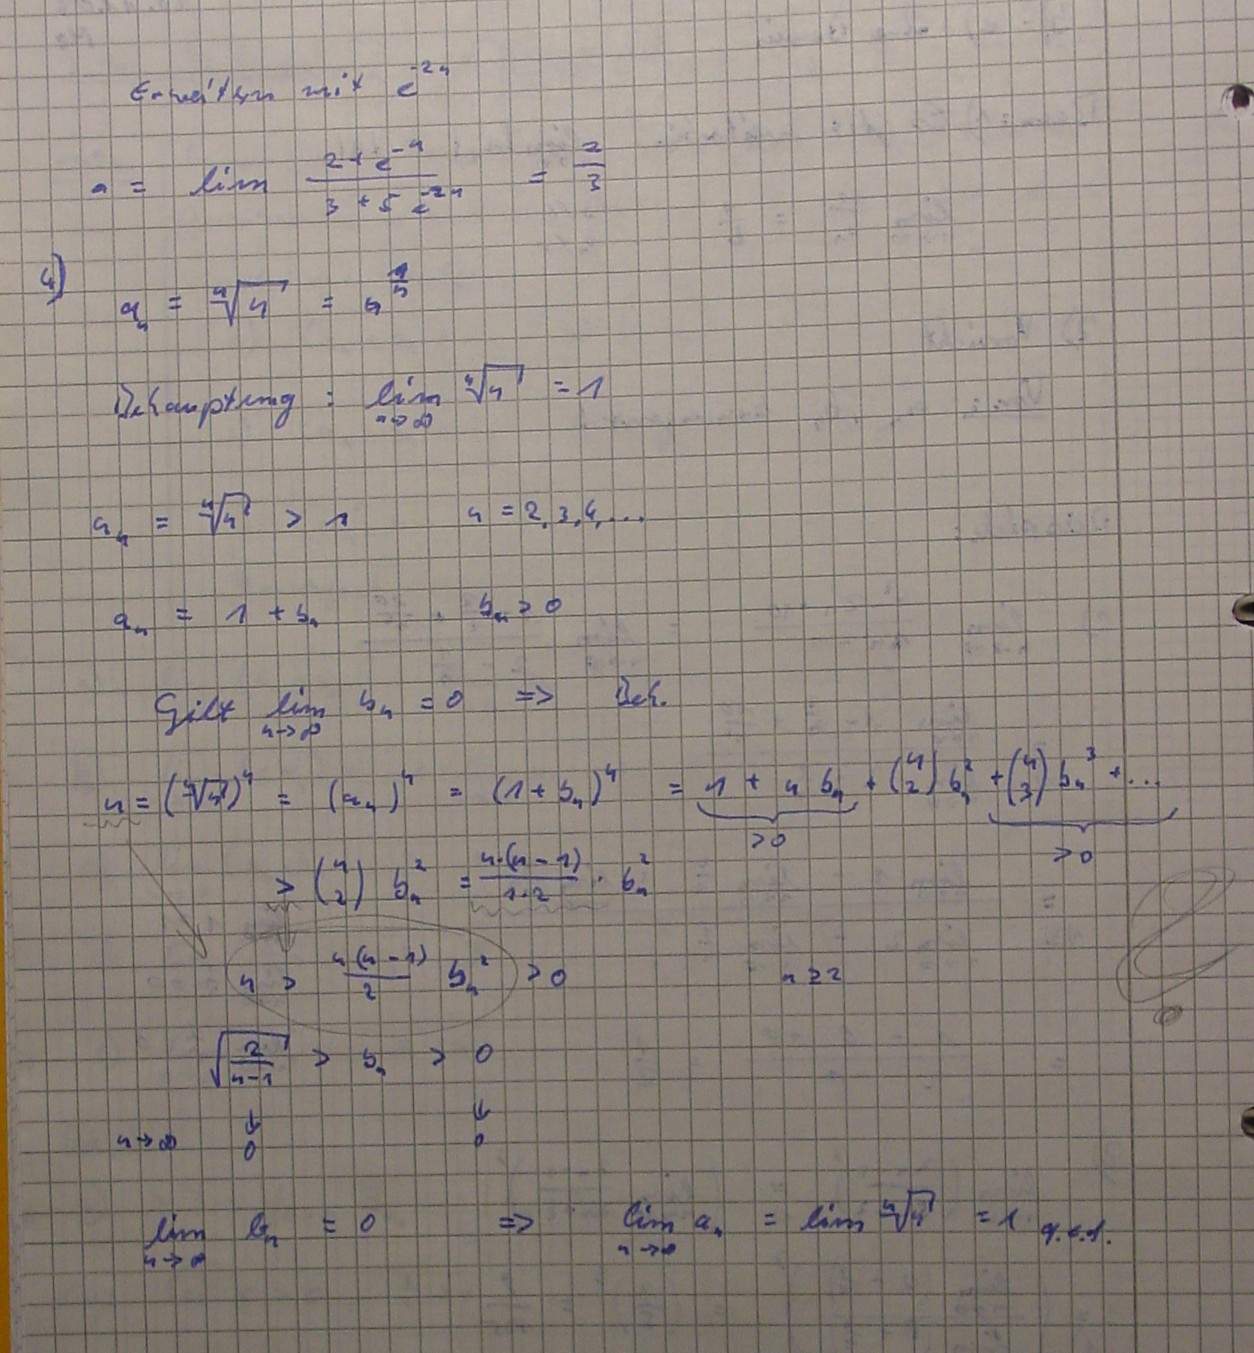 Erweitern mit e^{-2n}
a = lim (2 + e^{-n}) / (3 + 5 e^{-2n}) = 2/3
4)
a_n = ⁿ√n = n^{1/n}
Behauptung : lim_{n→∞} ⁿ√n = 1
a_n = ⁿ√n > 1 n = 2, 3, 4, ...
a_n = 1 + b_n , b_n > 0
Gilt lim_{n→∞} b_n = 0 => Beh.
n = (ⁿ√n)^n = (a_n)^n = (1 + b_n)^n = 1 + n b_n + (n über 2) b_n^2 + (n über 3) b_n^3 + ...
> 0 > 0
> (n über 2) b_n^2 = n·(n-1) / 1·2 · b_n^2
n > n(n-1)/2 b_n^2 > 0 n ≥ 2
√(2/(n-1)) > b_n > 0
↓ ↓
n→∞ 0 0
lim_{n→∞} b_n = 0 => lim_{n→∞} a_n = lim ⁿ√n = 1 q.e.d.